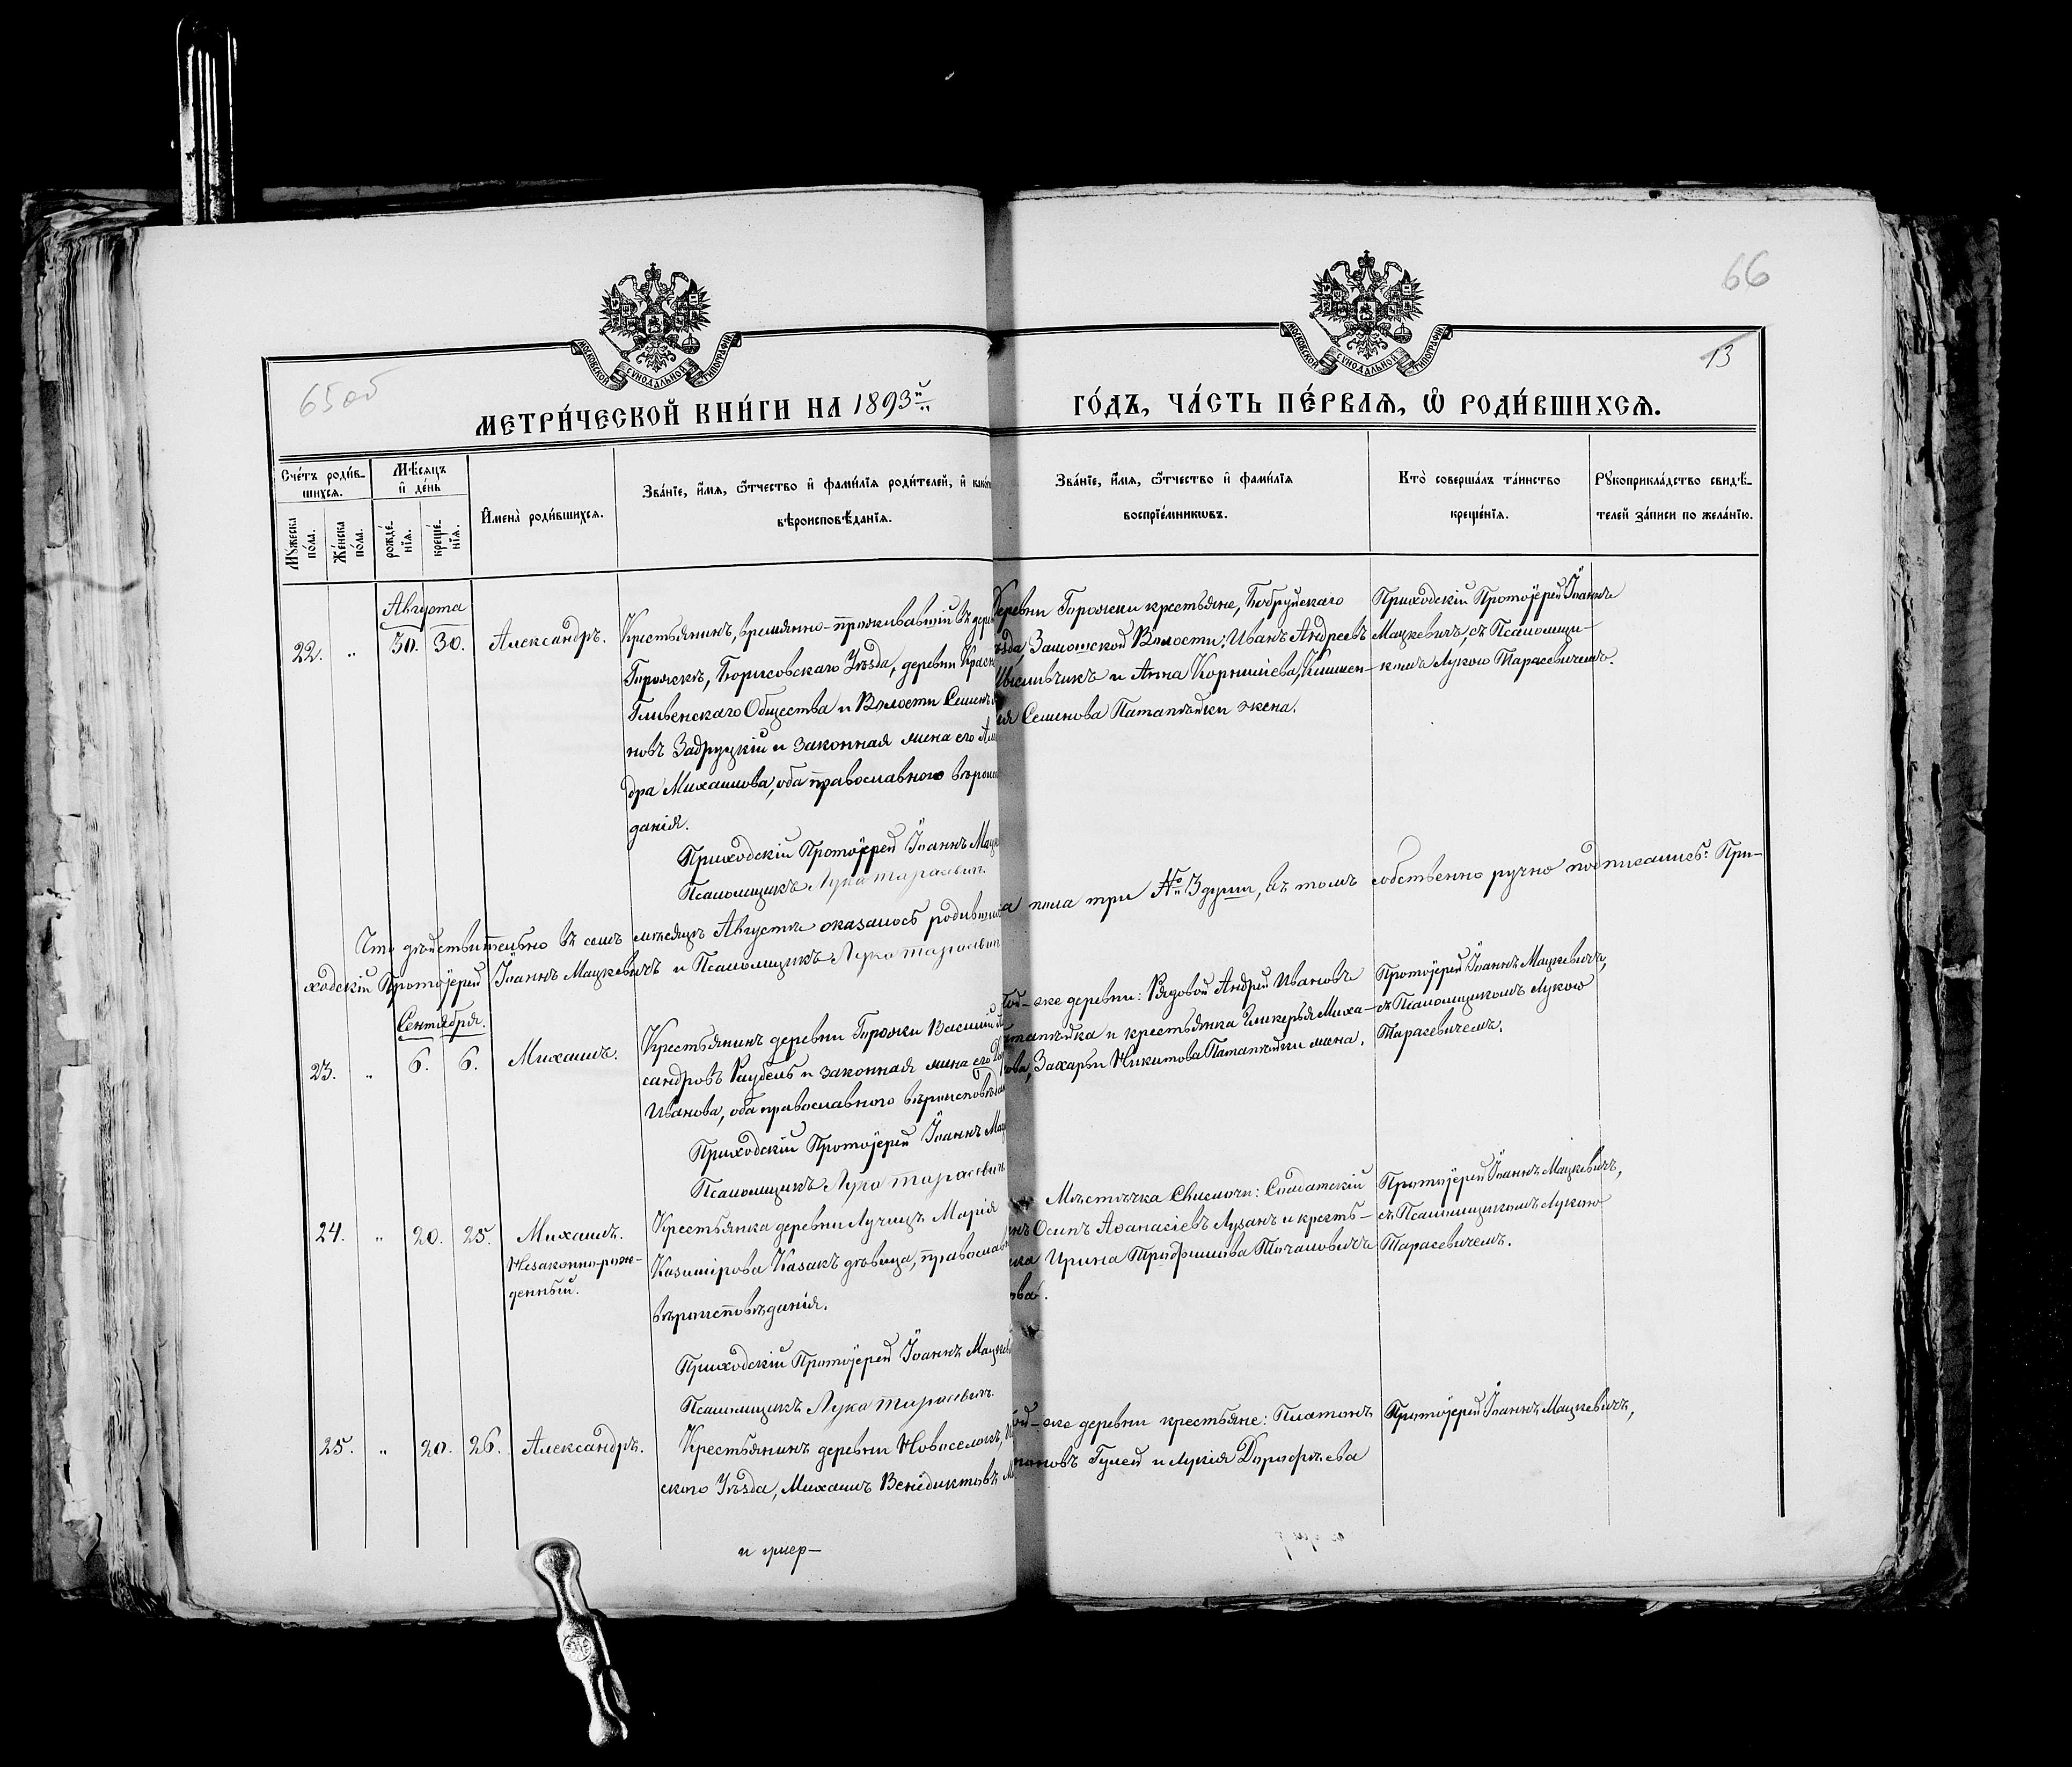 66
13
65об
МОСКОВСКОЙ СУНОДАЛЬНОЙ ТИПОГРАФІИ
МОСКОВСКОЙ СУНОДАЛЬНОЙ ТИПОГРАФІИ
МЕТРИ́ЧЕСКОЙ КНИ́ГИ НА 1893й
ГО́ДЪ, ЧА́СТЬ ПЕ́РВАЯ, Ѡ РОДИ́ВШИХСЯ.
Сче́тъ роди́в-
шихся.
Мꙋ́жеска по́ла.
Же́нска по́ла.
Мѣ́сяцъ
и҆ де́нь
рожде́-
нїя.
креще́-
нїя.
И҆мена̀ роди́вшихся.
Зва́нїе, и҆́мя, ѻ҆́тчество и҆ фами́лїя роди́телей, и҆ како́
вѣроисповѣ́данїя.
Зва́нїе, и҆́мя, ѻ҆́тчество и҆ фами́лїя
воспрїе́мникѡвъ.
Кто̀ соверша́лъ та́инство
креще́нїя.
Рꙋкоприкла́дство свидѣ́-
телей за́писи по жела́нїю.
Августа
22. „ 30. 30. Александръ.
Крестьянинъ, временно-проживавшій въ дерев
Горожкѣ, Борисовскаго Уѣзда, деревни Красн
Гливенскаго Общества и Волости Семенъ
новъ Задруцкій и законная жена его Але
дра Михаилова, оба православнаго вѣроис
данія.
Приходскій Протоіерей Іоаннъ Мацк
Псаломщикъ Лука Тарасевич
Деревни Горожки крестьяне, Бобруйскаго
ѣзда, Замошской Волости: Иванъ Андреевъ
и Анна Корнилієва,
ія Семенова Патапѣйки жена.
Приходскій Протоіерей Іоаннъ
Мацкевичъ, съ Псаломщи-
комъ Лукою Тарасевичемъ.
Что дѣйствительно въ семъ мѣсяцѣ Августѣ оказалось родивш а пола три № 3 души, въ томъ собственно ручно подписались: При-
ходскій Протоіерей Іоаннъ Мацкевичъ и Псаломщикъ Лука Тарасевич
Сентября.
23. „ 6. 6. Михаилъ.
Крестьянинъ деревни Горожки Василій
сандровъ Раубель и законная жена его
Иванова, оба православнаго вѣроисповѣдан
Приходскій Протоіерей Іоаннъ Мац
Псаломщикъ Лука Тарасевич
Той-же деревни: Рядовой Андрей Ивановъ
тапѣйка и крестьянка Гликерья Миха-
лова, Захарьи Никитова Патапѣйки жена.
Протоіерей Іоаннъ Мацкевичъ,
съ Псаломщикомъ Лукою
Тарасевичемъ.
24. „ 20. 25. Михаилъ.
Незаконно-рож-
денный.
Крестьянка деревни Лучицъ Марія
Казимірова Казакъ дѣвица, православн
вѣроисповѣданія.
Приходскій Протоіерей Іоаннъ Мацкев
Псаломщикъ Лука Тарасевич.
Мѣстечка Свислочи: Солдатскій
нъ Осипъ Афанасіевъ Лузанъ и кресть-
нка Ирина Трофимова Точановичъ
ова.
Протоіерей Іоаннъ Мацкевичъ,
съ Псаломщикомъ Лукою
Тарасевичемъ.
25. „ 20. 26. Александръ.
Крестьянинъ деревни Новоселокъ,
скаго Уѣзда, Михаилъ Венедиктовъ
Той-же деревни крестьяне: Платонъ
новъ Гулей и Лукія Дорофѣева
Протоіерей Іоаннъ Мацкевичъ,
и умер-